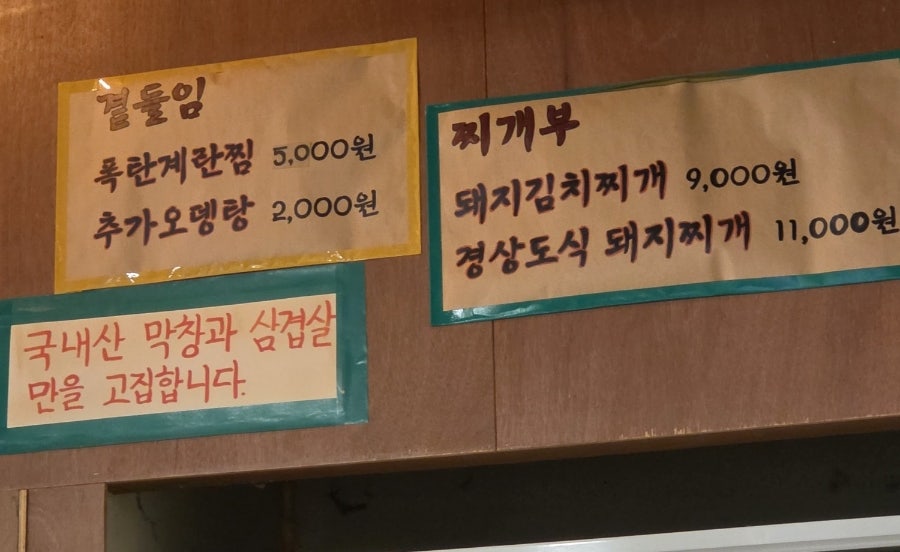 곁들임
폭탄계란찜 5,000원
추가오뎅탕 2,000원
찌개부
돼지김치찌개 9,000원
경상도식 돼지찌개 11,000원
국내산 막창과 삼겹살
만을 고집합니다.